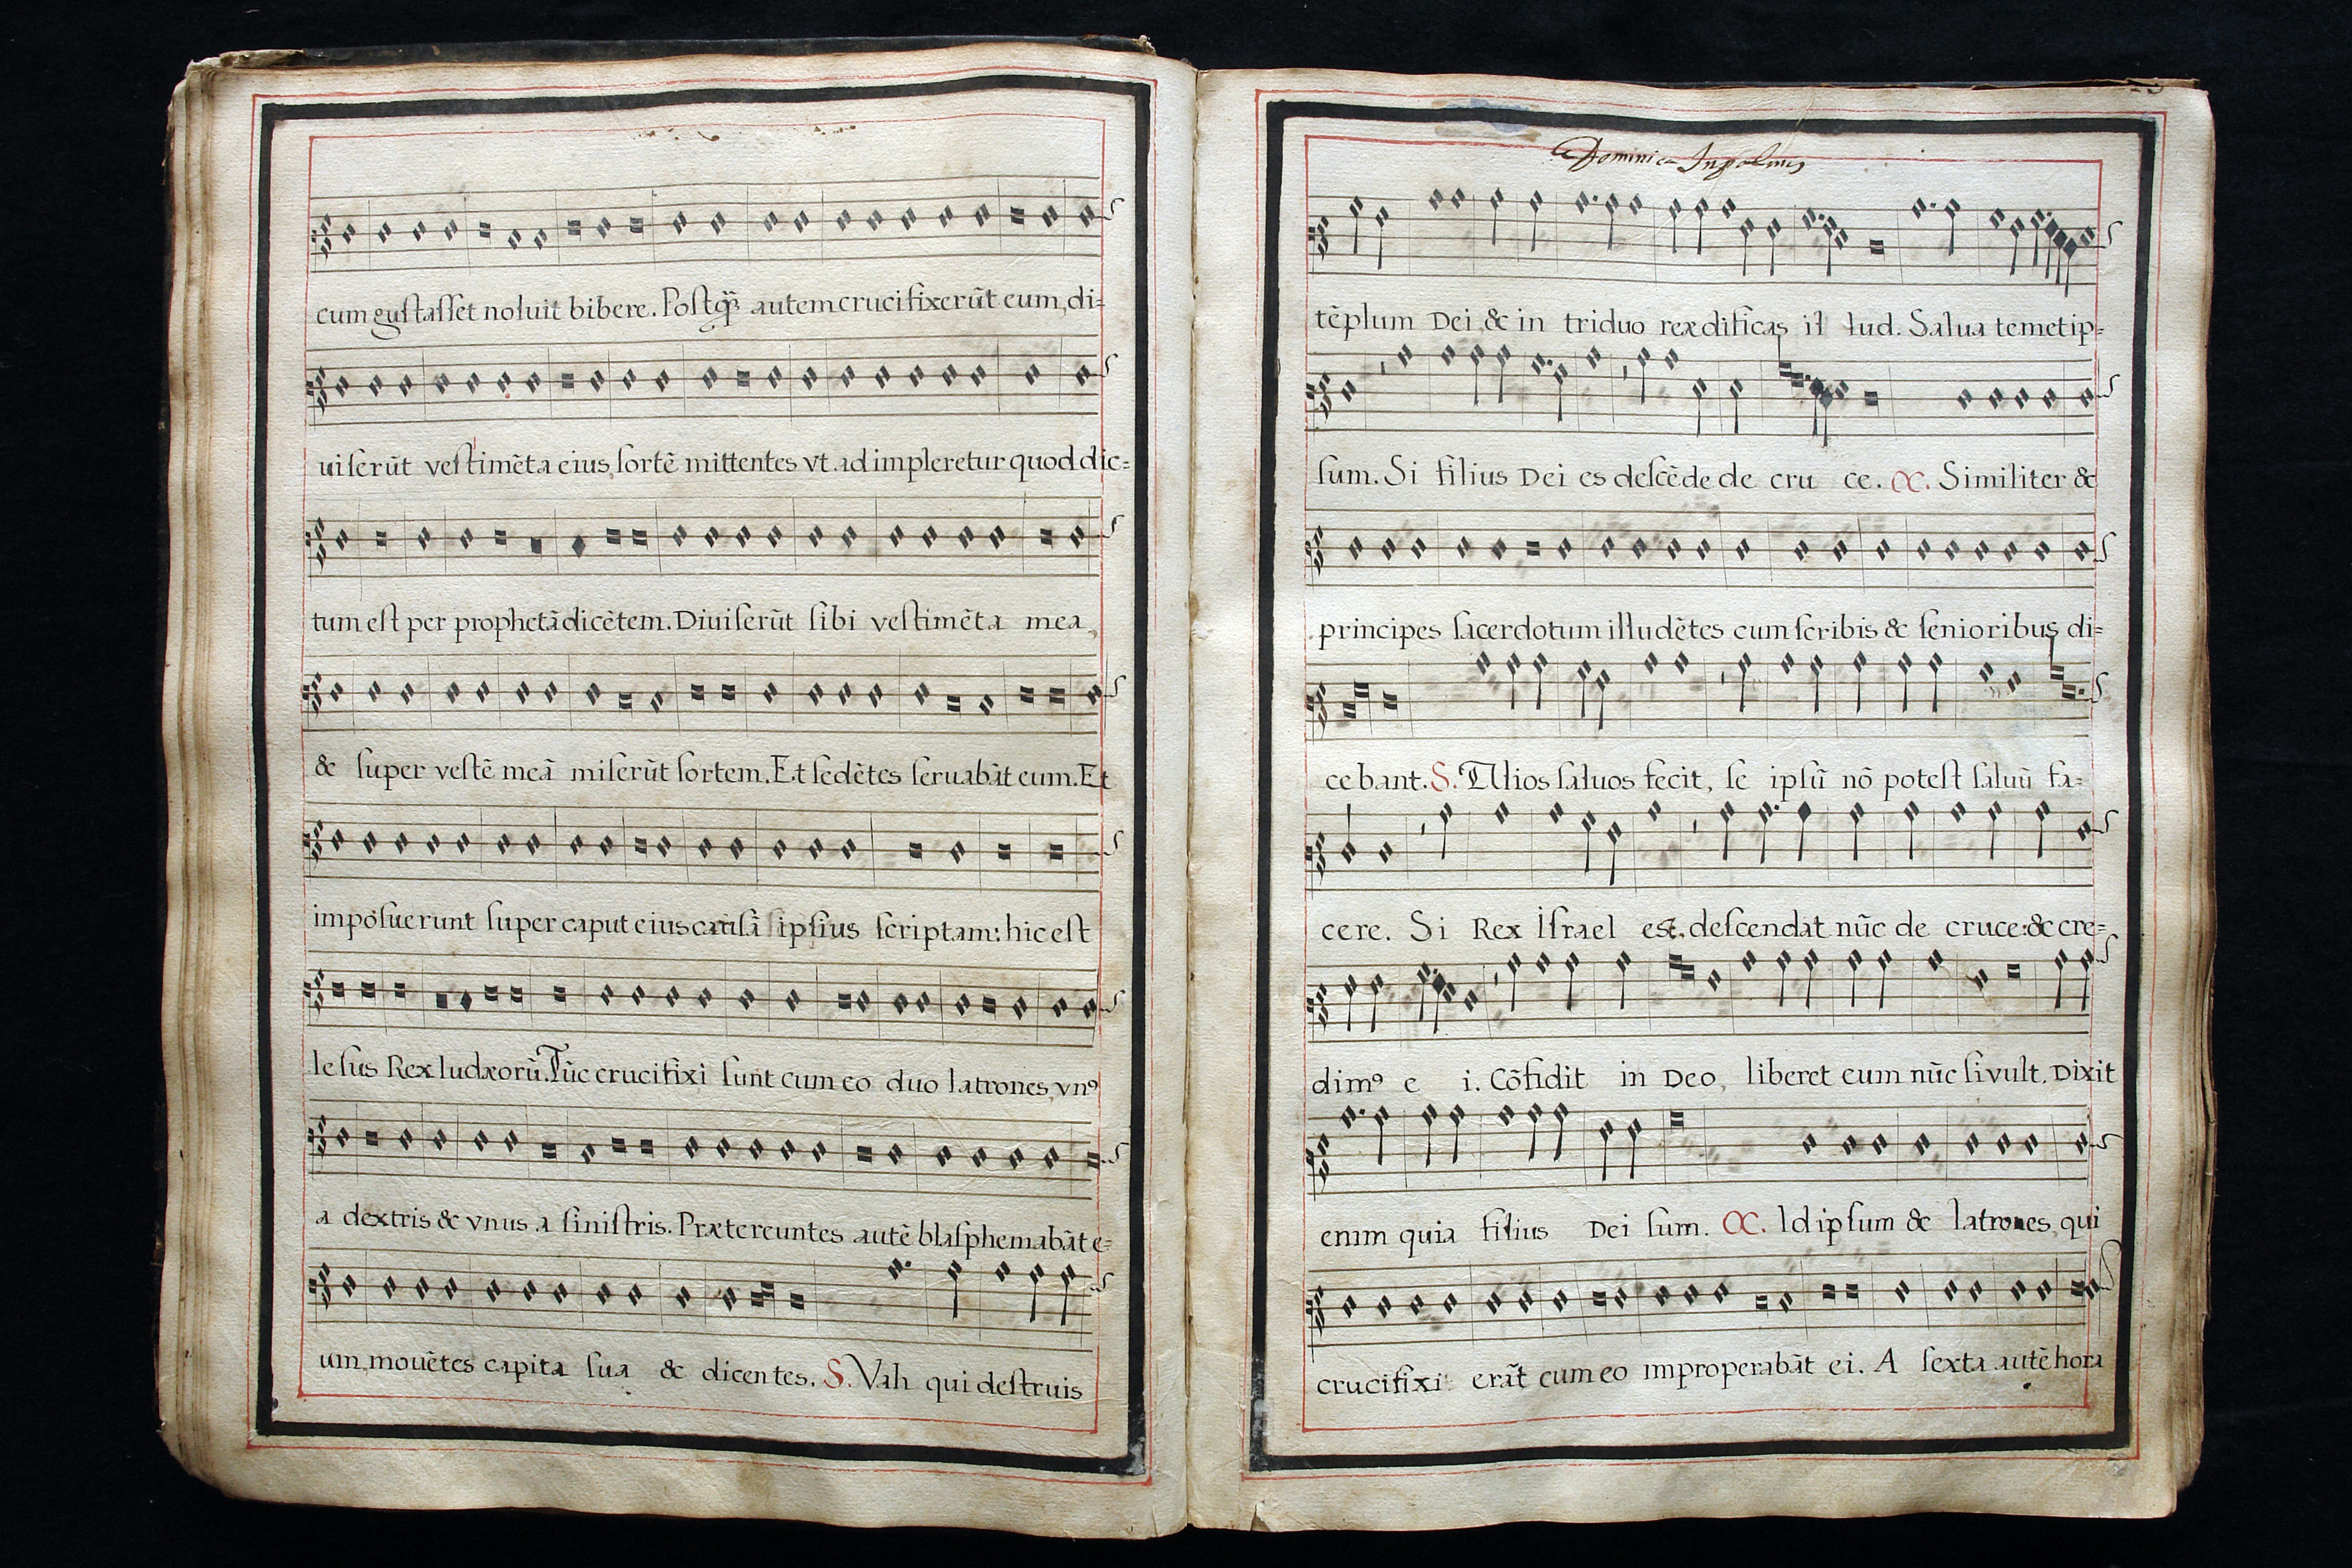 cum guſtaſſet noluit bibere. Poſtq̃ autem crucifixerũt eum, di=
uiſerũt veſtimẽta eius, ſortẽ mittentes vt adimpleretur quod dic=
tum eſt per prophetã dicẽtem. Diuiſerũt ſibi veſtimẽta mea,
& ſuper veſtẽ meã miſerũt ſortem. Et ſedẽtes ſeruabãt eum. Et
impoſuerunt ſuper caput eius cauſã ipſius ſcriptam: hic eſt
Ieſus Rex Iudæorũ. Tũc crucifixi ſunt cum eo duo latrones, vnꝰ
a dextris & vnus a ſiniſtris. Prætereuntes autẽ blaſphemabãt e=
um, mouẽtes capita ſua & dicentes. S. Vah qui deſtruis
Dominica In palmis
tẽplum Dei, & in triduo reædificas il lud. Salua temetip=
ſum. Si filius Dei es deſcẽde de cru ce. C. Similiter &
principes ſacerdotum illudẽtes cum ſcribis & ſenioribus di=
cebant. S. Alios ſaluos fecit, ſe ipſũ nõ poteſt ſaluũ fa=
cere. Si Rex Iſrael est, deſcendat nũc de cruce: & cre=
dimꝰ e i. Cõfidit in Deo, liberet eum nũc ſi vult. Dixit
enim quia filius Dei ſum. C. Id ipſum & latrones, qui
crucifixi erãt cum eo improperabãt ei. A ſexta autẽ hora